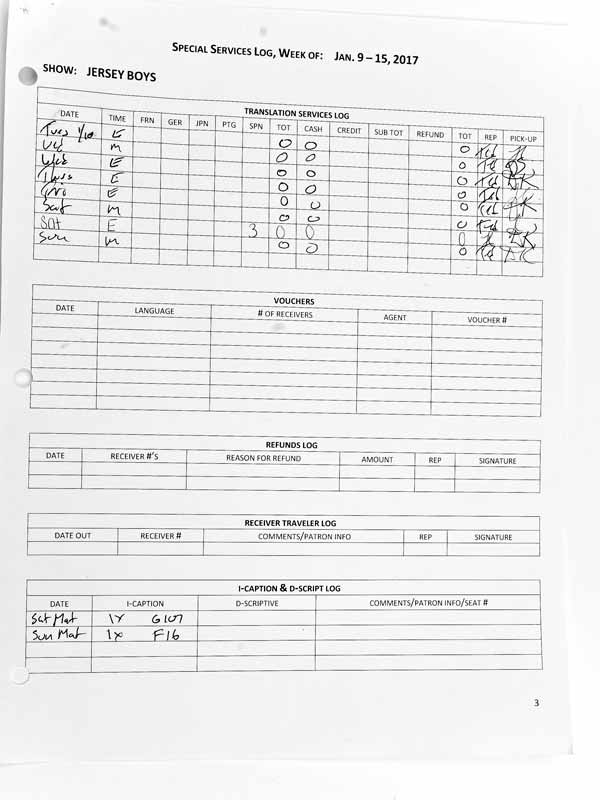 SPECIAL SERVICES LOG, WEEK OF: JAN. 9 – 15, 2017
SHOW: JERSEY BOYS
TRANSLATION SERVICES LOG
DATE TIME FRN GER JPN PTG SPN TOT CASH CREDIT SUB TOT REFUND TOT REP PICK-UP
Tues 1/10 E 0 0 0 Ted
Wed M 0 0 0 Ted
Wed E 0 0 0 Ted
Thurs E 0 0 0 Ted
E 0 0 0 Ted
Sat M 0 0 0 Ted
Sat E 3 0 0 0
Sun M 0 0 0 Ted
VOUCHERS
DATE LANGUAGE # OF RECEIVERS AGENT VOUCHER #
REFUNDS LOG
DATE RECEIVER #'S REASON FOR REFUND AMOUNT REP SIGNATURE
RECEIVER TRAVELER LOG
DATE OUT RECEIVER # COMMENTS/PATRON INFO REP SIGNATURE
I-CAPTION & D-SCRIPT LOG
DATE I-CAPTION D-SCRIPTIVE COMMENTS/PATRON INFO/SEAT #
Sat Mat 1x G107
Sun Mat 1x F16
3